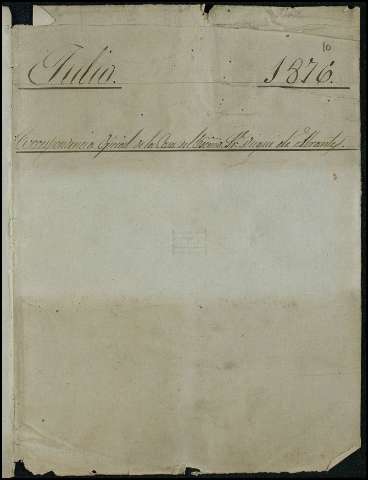 10
Julio. 1876.
Correspondencia Oficial de la Casa del Excmo. Sr. Duque de Abrantes.